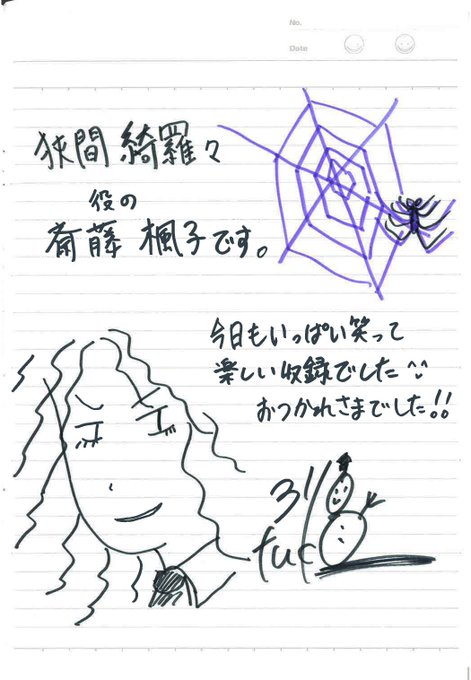 No.
Date
狭間 綺羅々
役の
斎藤 楓子です。
今日もいっぱい笑って
楽しい収録でした
おつかれさまでした!!